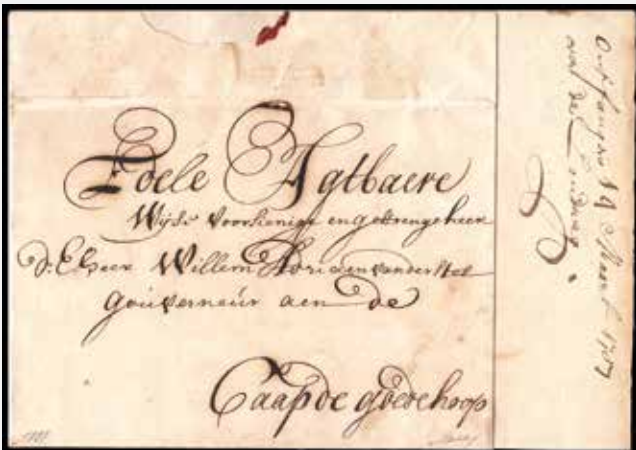 Edele Agtbaere
Wijse Voorsienige en gestrenge heer
d'E heer Willem Adriaen vander Stel
Gouverneur aen de
Caap de goede hoop
Ontfangen 14 Maart 1707